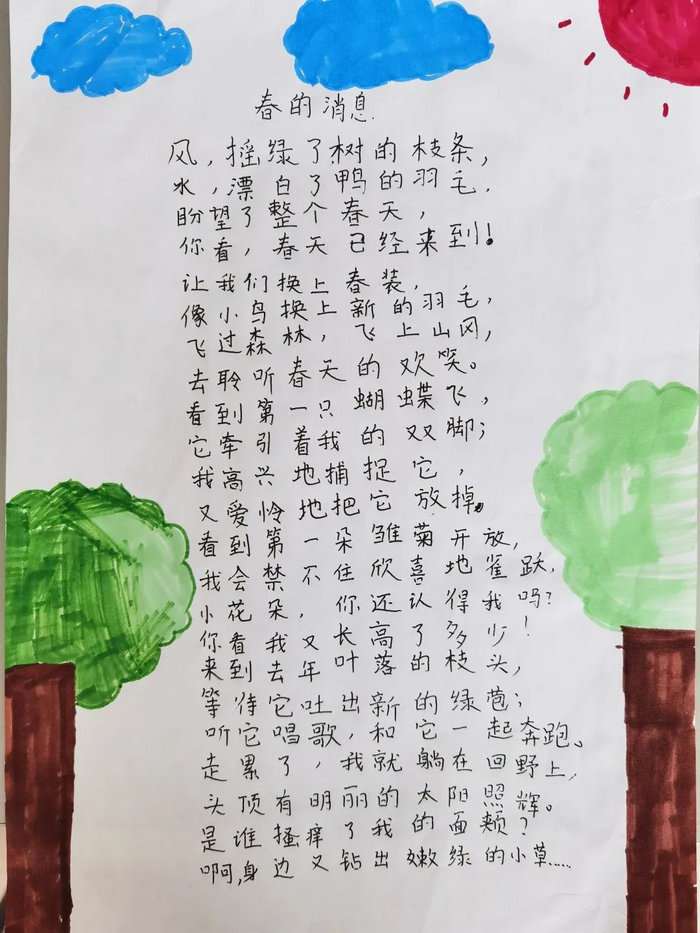 春的消息
风,摇绿了树的枝条,
水,漂白了鸭的羽毛.
盼望了整个春天,
你看,春天已经来到!
让我们换上春装,
像小鸟换上新的羽毛,
飞过森林,飞上山冈,
去聆听春天的欢笑。
看到第一只蝴蝶飞,
它牵引着我的双脚;
我高兴地捕捉它,
又爱怜地把它放掉。
看到第一朵雏菊开放,
我会禁不住欣喜地雀跃.
小花朵,你还认得我吗?
你看我又长高了多少!
来到去年叶落的枝头,
等待它吐出新的绿苞;
听它唱歌,和它一起奔跑。
走累了,我就躺在回野上,
头顶有明丽的太阳照辉。
是谁搔痒了我的面颊?
啊,身边又钻出嫩绿的小草.....